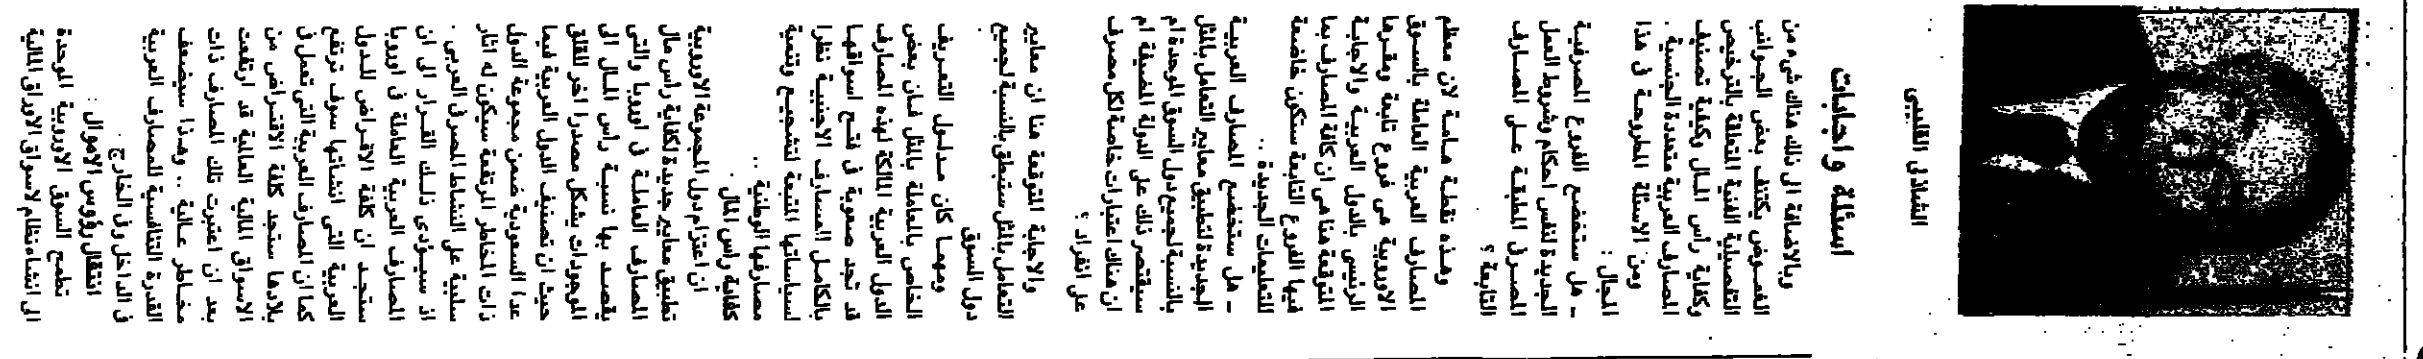 الشاذلي القليبي
اسئلة واجابات
وبالاضافة الى ذلك هناك شيء من
الغموض يكتنف بعض الجوانب
التفصيلية الفنية المتعلقة بالترخيص
وكفاية رأس المال وكيفية تصنيف
المصارف العربية متعددة الجنسية .
ومن الاسئلة المطروحة في هذا
المجال :
ـ هل ستخضع الفروع المصرفية
الجديدة لنفس احكام وشروط العمل
المصرفي المطبقة على المصارف
التابعة ؟
وهذه نقطة هامة لان معظم
المصارف العربية العاملة بالسوق
الاوروبية هي فروع تابعة ومقرها
الرئيسي بالدول العربية والاجابة
المتوقعة هنا هي ان كافة المصارف بما
فيها الفروع التابعة ستكون خاضعة
للتعليمات الجديدة ..
ـ هل ستخضع المصارف العربية
الجديدة لتطبيق معايير التعامل بالمثل
بالنسبة لجميع دول السوق الموحدة ام
سيقتصر ذلك على الدولة المضيفة ام
ان هناك اعتبارات خاصة لكل مصرف
على انفراد ؟
والاجابة المتوقعة هنا ان معايير
التعامل بالمثل ستطبق بالنسبة لجميع
دول السوق .
ومهما كان مدلول التعريف
الخاص بالمعاملة بالمثل فان بعض
الدول العربية المالكة لهذه المصارف
قد تجد صعوبة في فتح اسواقها
بالكامل للمصارف الاجنبية نظرا
لسياساتها المتبعة لتشجيع وتنمية
مصارفها الوطنية ..
كفاية راس المال .
ان اعتزام دول المجموعة الاوروبية
تطبيق معايير جديدة لكفاية راس مال
المصارف العاملة في اوروبا والتي
يقصد بها نسبة رأس المال الى
الموجودات يشكل مصدرا اخر للقلق
حيث ان تصنيف الدول العربية فيما
عدا السعودية ضمن مجموعة الدول
ذات المخاطر المرتفعة سيكون له اثار
سلبية على النشاط المصرفي العربي .
اذ سيؤدي ذلك القرار الى ان
المصارف العربية العاملة في اوروبا
ستجد ان كلفة الاقراض للدول
العربية التي انشأتها سوف ترتفع
كما ان المصارف العربية التي تعمل في
بلادها ستجد كلفة الاقتراض من
الاسواق المالية العالمية قد ارتفعت
بعد ان اعتبرت تلك المصارف ذات
مخاطر عالية .. وهذا سيضعف
القدرة التنافسية للمصارف العربية
في الداخل وفي الخارج .
انتقال رؤوس الاموال :
تطمح السوق الاوروبية الموحدة
الى انشاء نظام لاسواق الاوراق المالية